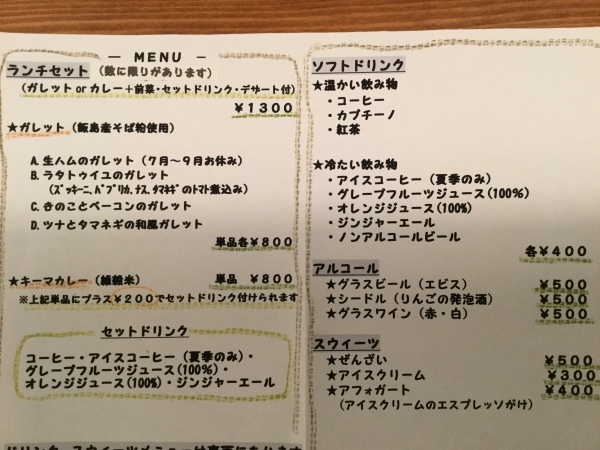 ― MENU ―
ランチセット（数に限りがあります）
（ガレット or カレー＋前菜・セットドリンク・デザート付）
￥１３００
★ガレット（飯島産そば粉使用）
A. 生ハムのガレット（７月～９月お休み）
B. ラタトゥイユのガレット
（ズッキーニ、パプリカ、ナス、タマネギのトマト煮込み）
C. きのことベーコンのガレット
D. ツナとタマネギの和風ガレット
単品各￥８００
★キーマカレー（雑穀米） 単品 ￥８００
※上記単品にプラス￥２００でセットドリンク付けられます
セットドリンク
コーヒー・アイスコーヒー（夏季のみ）・
グレープフルーツジュース(100%)・
オレンジジュース(100%)・ジンジャーエール
ソフトドリンク
★温かい飲み物
・コーヒー
・カプチーノ
・紅茶
★冷たい飲み物
・アイスコーヒー（夏季のみ）
・グレープフルーツジュース(100%)
・オレンジジュース(100%)
・ジンジャーエール
・ノンアルコールビール
各￥４００
アルコール
★グラスビール（エビス） ￥５００
★シードル（りんごの発泡酒） ￥５００
★グラスワイン（赤・白） ￥５００
スウィーツ
★ぜんざい ￥５００
★アイスクリーム ￥３００
★アフォガート ￥４００
（アイスクリームのエスプレッソがけ）